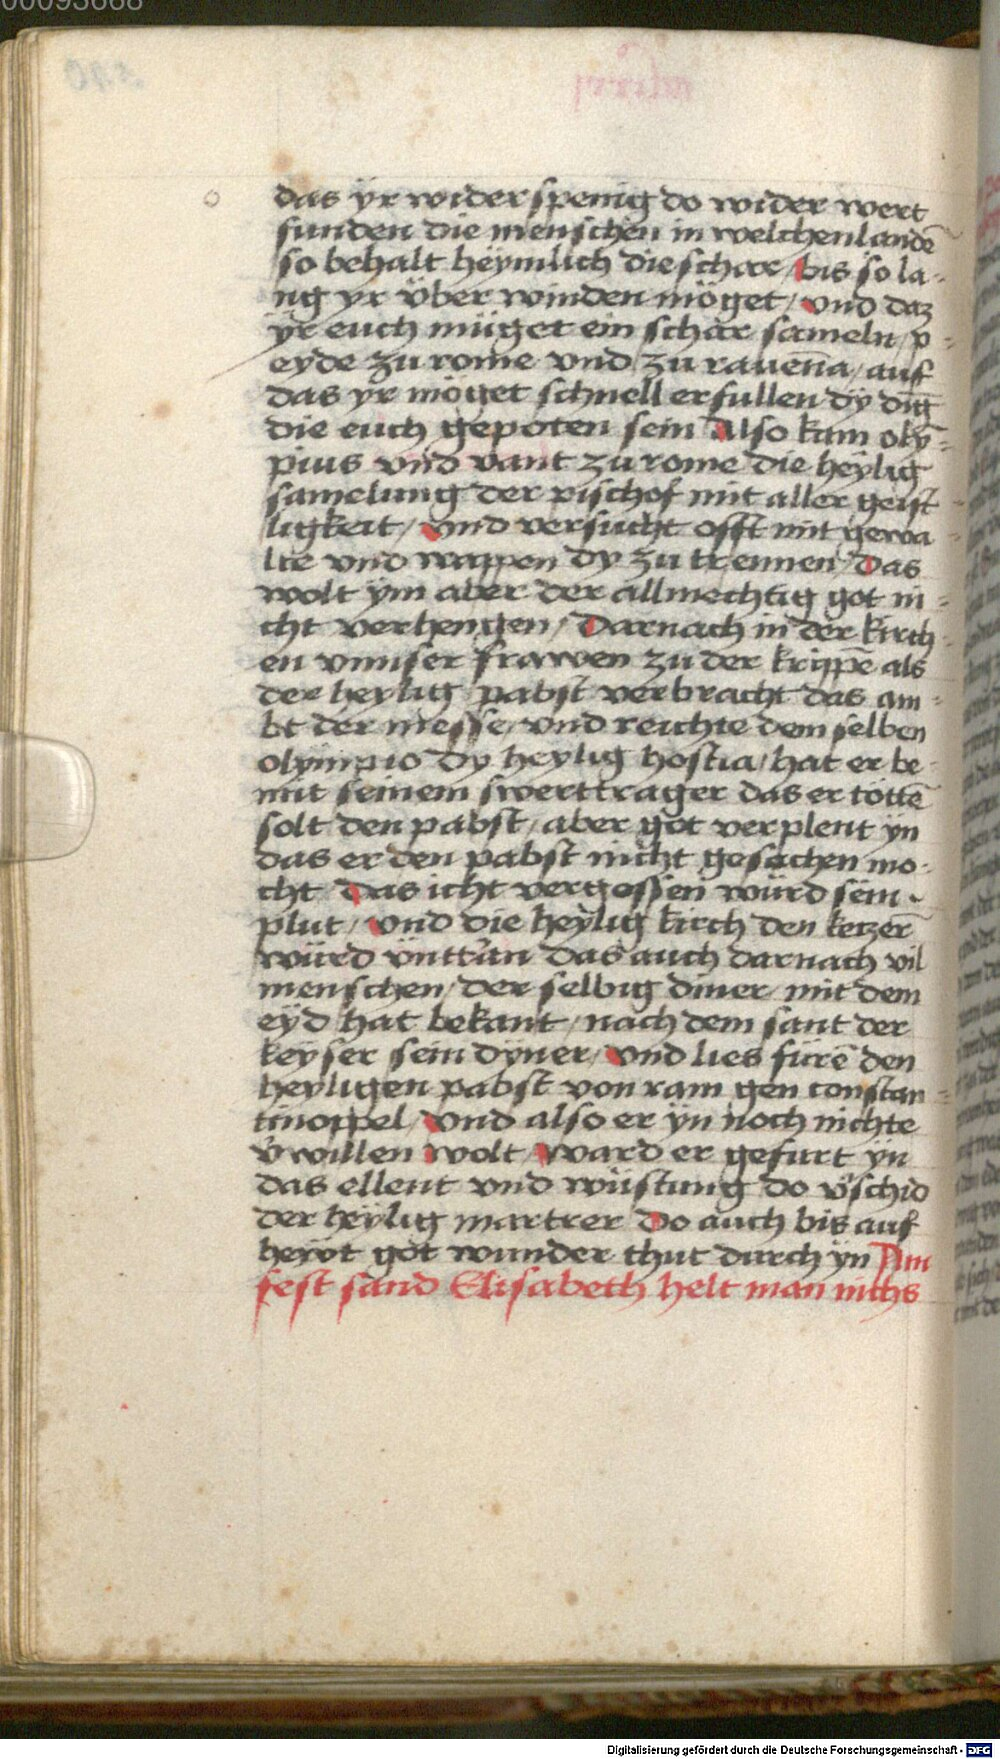 00093668
das ÿr wider spenig do wider wert
funden die menschen in welchen landē
so behalt heÿmlich die schar / bis so la-
ng yr v̈ber winden möget / vnd daz
ÿr euch müget ein schar sameln / p-
eyde zu rome vnd zu rauen̄a / auf
das yr möget schnell erfullen dÿ dīg
die euch gepoten sein Also kam olÿ-
pius vnd vant zu rome die heÿlig
samelung der pischof mit aller geist-
ligkeit / vnd versucht offt mit gewa-
lte vnd wappen dy zu trennen / Das
wolt ÿm aber der allmechtig got ni-
cht verhengen / Darnach in der kirch-
en vnnser frawen zu der krippē als
der heylig pabst verbracht das am-
bt der messe / vnd reichte dem selben
olÿmpio dy heylig hostia / hat er be-
mit seinem swerttrager das er töttē
solt den pabst / aber got verplent ÿn
das er den pabst nicht gesechen mo-
cht Das icht vergossen würd sein
plut / vnd die heÿlig kirch den ketzerē
würd v̈ntt'an das auch darnach vil
menschen / der selbig diner mit dem
eÿd hat bekant / nach dem sant der
keÿser sein dÿner / vnd lies fürē den
heyligen pabst von ram gen constan-
tinoppel / vnd also er ÿn noch nichte
v'willen wolt / ward er gefurt ÿn
das ellent vnd wüstung do v'schid
der heÿlig martrer Do auch bis auf
heẅt got wunder thut durch ÿn Am
fest sand Elisabeth helt man nichs
Digitalisierung gefördert durch die Deutsche Forschungsgemeinschaft - DFG